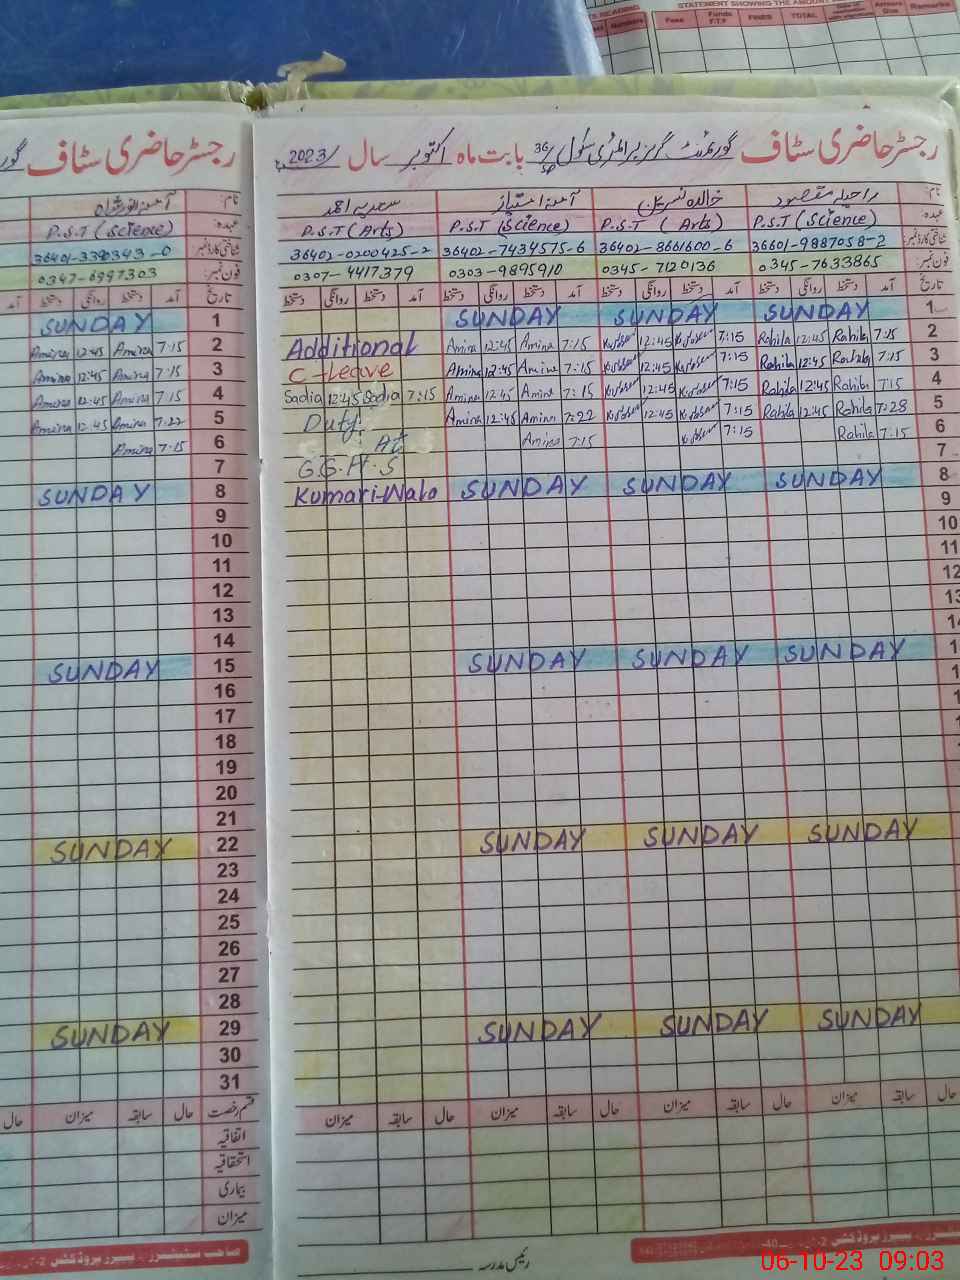 STATEMENT SHOWING THE AMOUNT
Fess Funds F.T.F Finds TOTAL Remarks
رجسٹر حاضری سٹاف گورنمنٹ گرلز پرائمری سکول 36/SP بابت ماہ اکتوبر سال 2023/
رجسٹر حاضری سٹاف
نام: راحیلہ مقصود خالدہ نسرین آمنہ امتیاز سعدیہ احمد
عہدہ: P.S.T (Science) P.S.T (Arts) P.S.T (Science) P.S.T (Arts)
شناختی کارڈ نمبر: 36601-9887058-2 36402-8661600-6 36402-7434575-6 36402-0200425-2
فون نمبر: 0345-7633865 0345-7120136 0303-9895910 0307-4417379
تاریخ آمد دستخط روانگی دستخط آمد دستخط روانگی دستخط آمد دستخط روانگی دستخط آمد دستخط روانگی دستخط
1 SUNDAY SUNDAY SUNDAY
2 7:15 Rahila 12:45 Rahila 7:15 12:45 7:15 Amina 12:45 Amina Additional
3 7:15 Rahila 12:45 Rahila 7:15 12:45 7:15 Amina 12:45 Amina C-Leave
4 7:15 Rahila 12:45 Rahila 7:15 12:45 7:15 Amina 12:45 Amina 7:15 Sadia 12:45 Sadia
5 7:28 Rahila 12:45 Rahila 7:15 12:45 7:22 Amina 12:45 Amina Duty
6 7:15 Rahila 7:15 7:15 Amina At
7 G.G.H.S
8 SUNDAY SUNDAY SUNDAY Kumari-Wala
9
10
11
12
13
14
SUNDAY SUNDAY SUNDAY
SUNDAY SUNDAY SUNDAY
SUNDAY SUNDAY SUNDAY
حال میزان سابقہ حال میزان سابقہ حال میزان سابقہ حال میزان
رئیس مدرسہ
نام:
عہدہ: P.S.T (Science)
شناختی کارڈ نمبر: 36401-3390343-0
فون نمبر: 0347-6997303
تاریخ آمد دستخط روانگی دستخط آمد
1 SUNDAY
2 7:15 Amina 12:45 Amina
3 7:15 Amina 12:45 Amina
4 7:15 Amina 12:45 Amina
5 7:22 Amina 12:45 Amina
6 7:15 Amina
7
8 SUNDAY
9
10
11
12
13
14
15 SUNDAY
16
17
18
19
20
21
22 SUNDAY
23
24
25
26
27
28
29 SUNDAY
30
31
قسم رخصت حال سابقہ میزان حال
اتفاقیہ
استحقاقیہ
بیماری
میزان
06-10-23 09:03